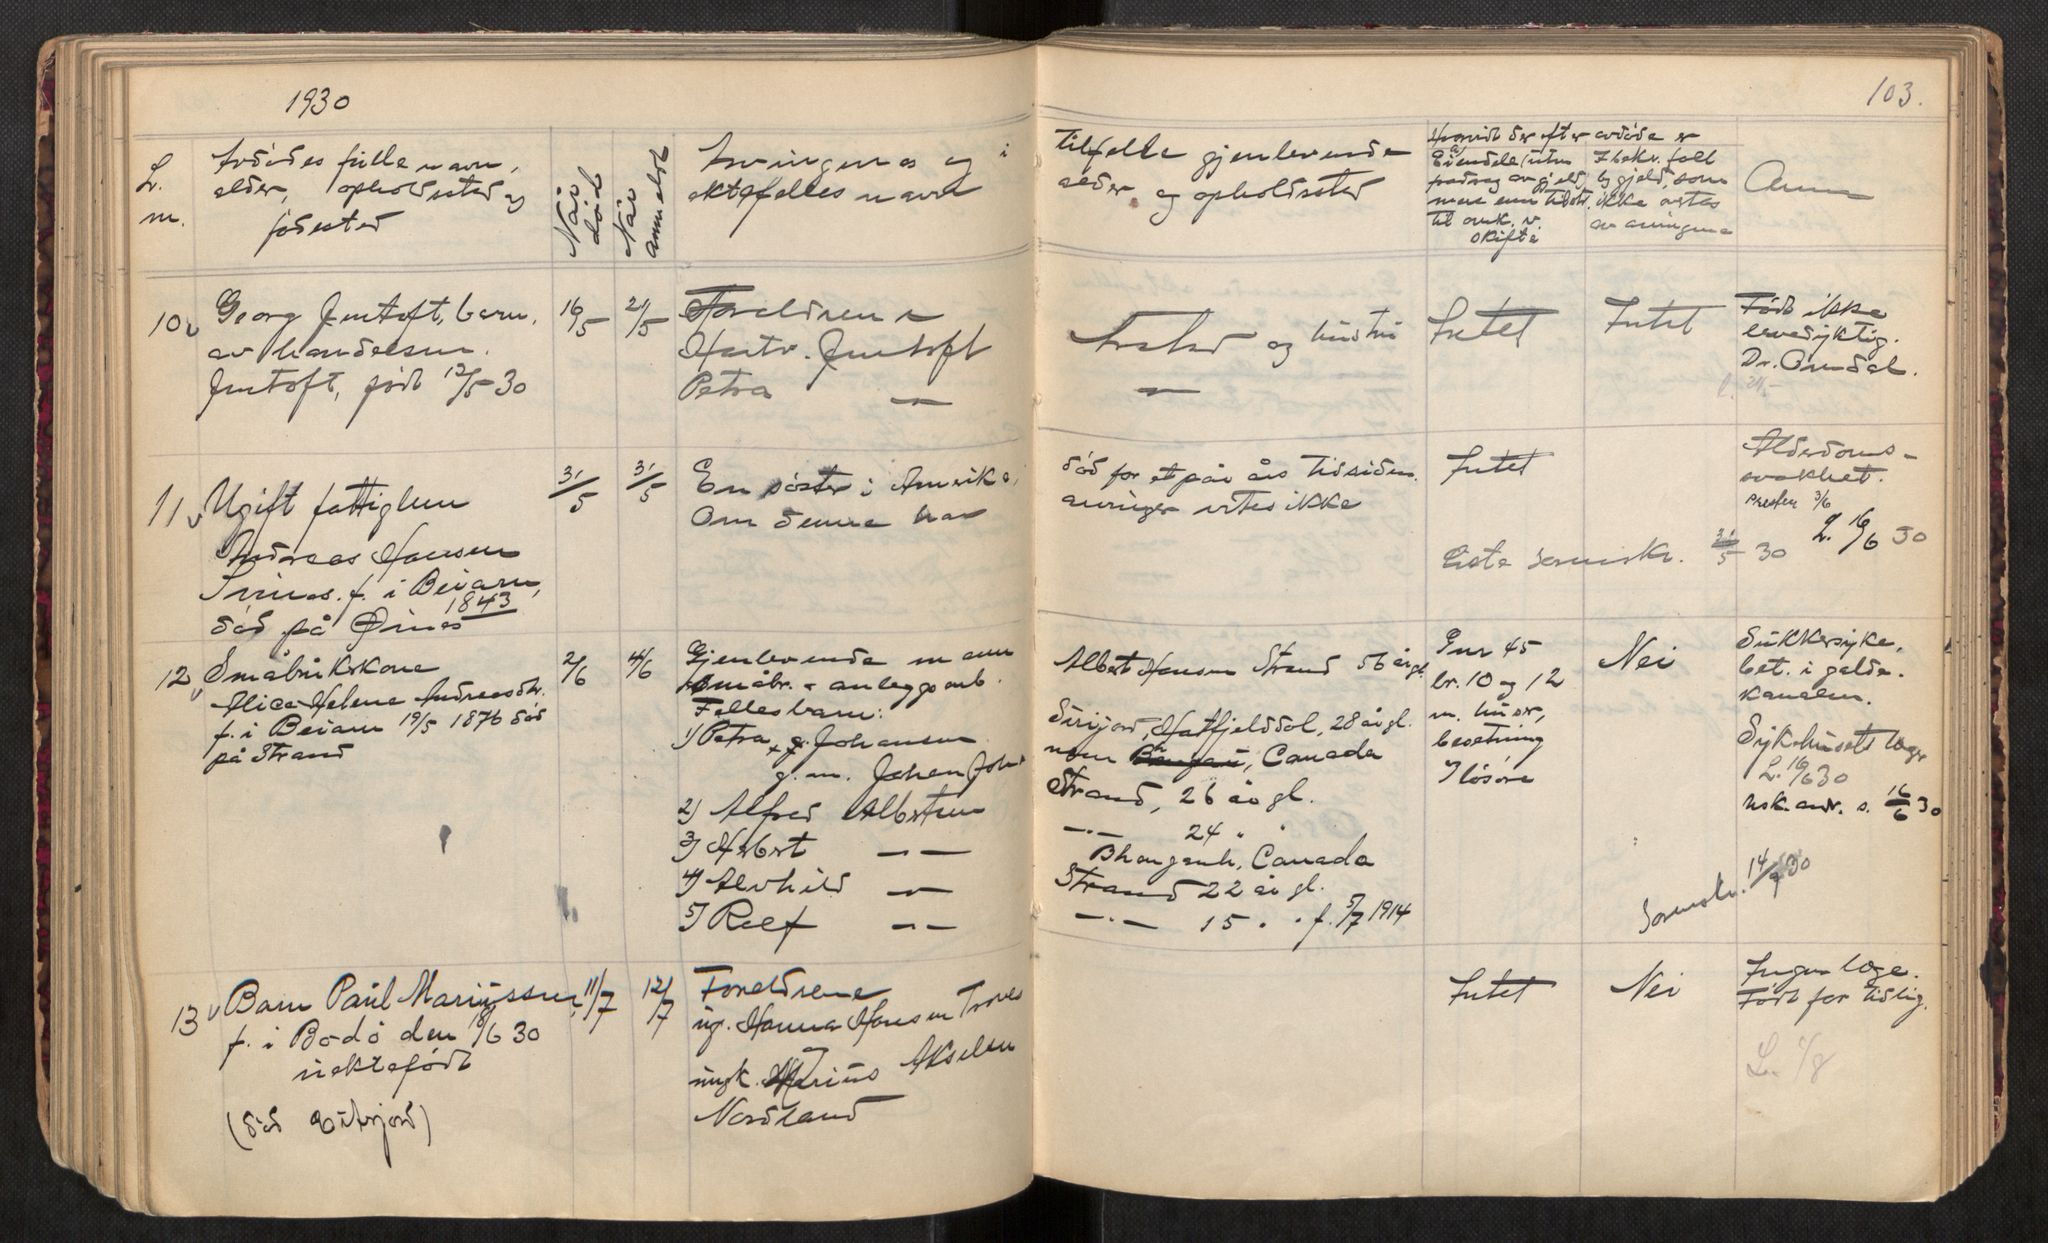 1930
103.
L.
nr.
Avdødes fulle navn,
alder, opholdssted og
fødested
Når
død
Når
anmeldt
Arvingenes og i
ektefelles navn
tilfelle gjenlevende
alder og opholdssted
Hvorvidt der efter avdøde er
Eiendele (uten
fradrag av gjeld)
mere enn tilstr.
til omk. v.
skifte
bekr. fall
gjeld, som
ikke
av arvingene
Anm
10
Georg Jentoft, barn
av handelsm.
Jentoft, født 12/5 30
16/5
21/5
Foreldrene
Hartv. Jentoft
Petra —"—
og hustru
—"—
Intet
Intet
Født ikke
levedyktig.
Dr.
11
Ugift fattiglem
Andreas Hansen
f. i Beiarn,
1843
død på Ørnes
31/5
31/5
En søster i Amerika,
Om denne har
død for et par års tid siden.
arvinger vites ikke
Intet
sorenskr. 31/5 30
Alderdoms-
svakhet.
Presten 3/6
L. 16/6 30
12
Småbrukskone
Alice Helene Andreasdtr.
f. i Beiarn 19/5 1876 død
på Strand
2/6
4/6
Gjenlevende mann
småbr. & anleggsarb.
Fellesbarn:
1) Petra g. Johansen
g. m. Johan Joh
2) Alfred Albertsen
3) Herbert —"—
4) Alvhild —"—
5) Rolf —"—
Albert Hansen Strand 56 år gl.
Hatfjelddal, 28 år gl.
Canada
Strand, 26 år gl.
—"— 24 " "
Canada
Strand 22 år gl.
—"— 15 " " f. 5/7 1914
Gnr 45
br. 10 og 12
m. huser,
besetning
løsøre
Nei
Sukkersyke,
bet. i galde-
kanalen.
Sykehusets læge
L. 16/6 30
usk. andr. s. 16/6 30
Sorenskr. 14/9 30
13
Barn Paul Mariussen,
f. i Bodø den /6 30
uektefødt
(død
11/7
12/7
Foreldrene
ug. Hanna Hansen
ungk. Marius Akselsen
Nordland
Intet
Nei
Ingen læge.
Født for tidlig.
L. /8